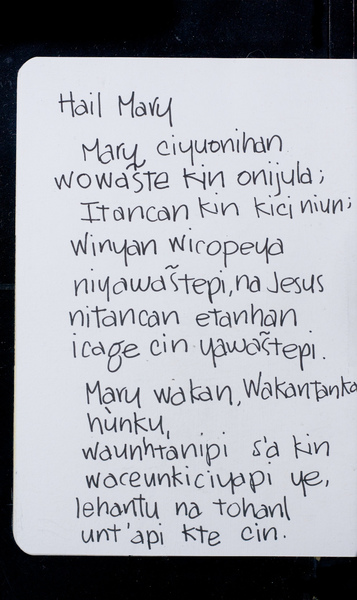 Hail Mary
Mary, ciyuonihan
wowas̃te kin onijula;
Itancan kin kici niun;
winyan wicopeya
niyawas̃tepi, na Jesus
nitancan etanhan
icage cin yawas̃tepi.
Mary wakan, Wakantanka
hùnku,
waunhtanipi s'a kin
waceunkiciyapi ye,
lehantu na tohanl
unt'api kte cin.